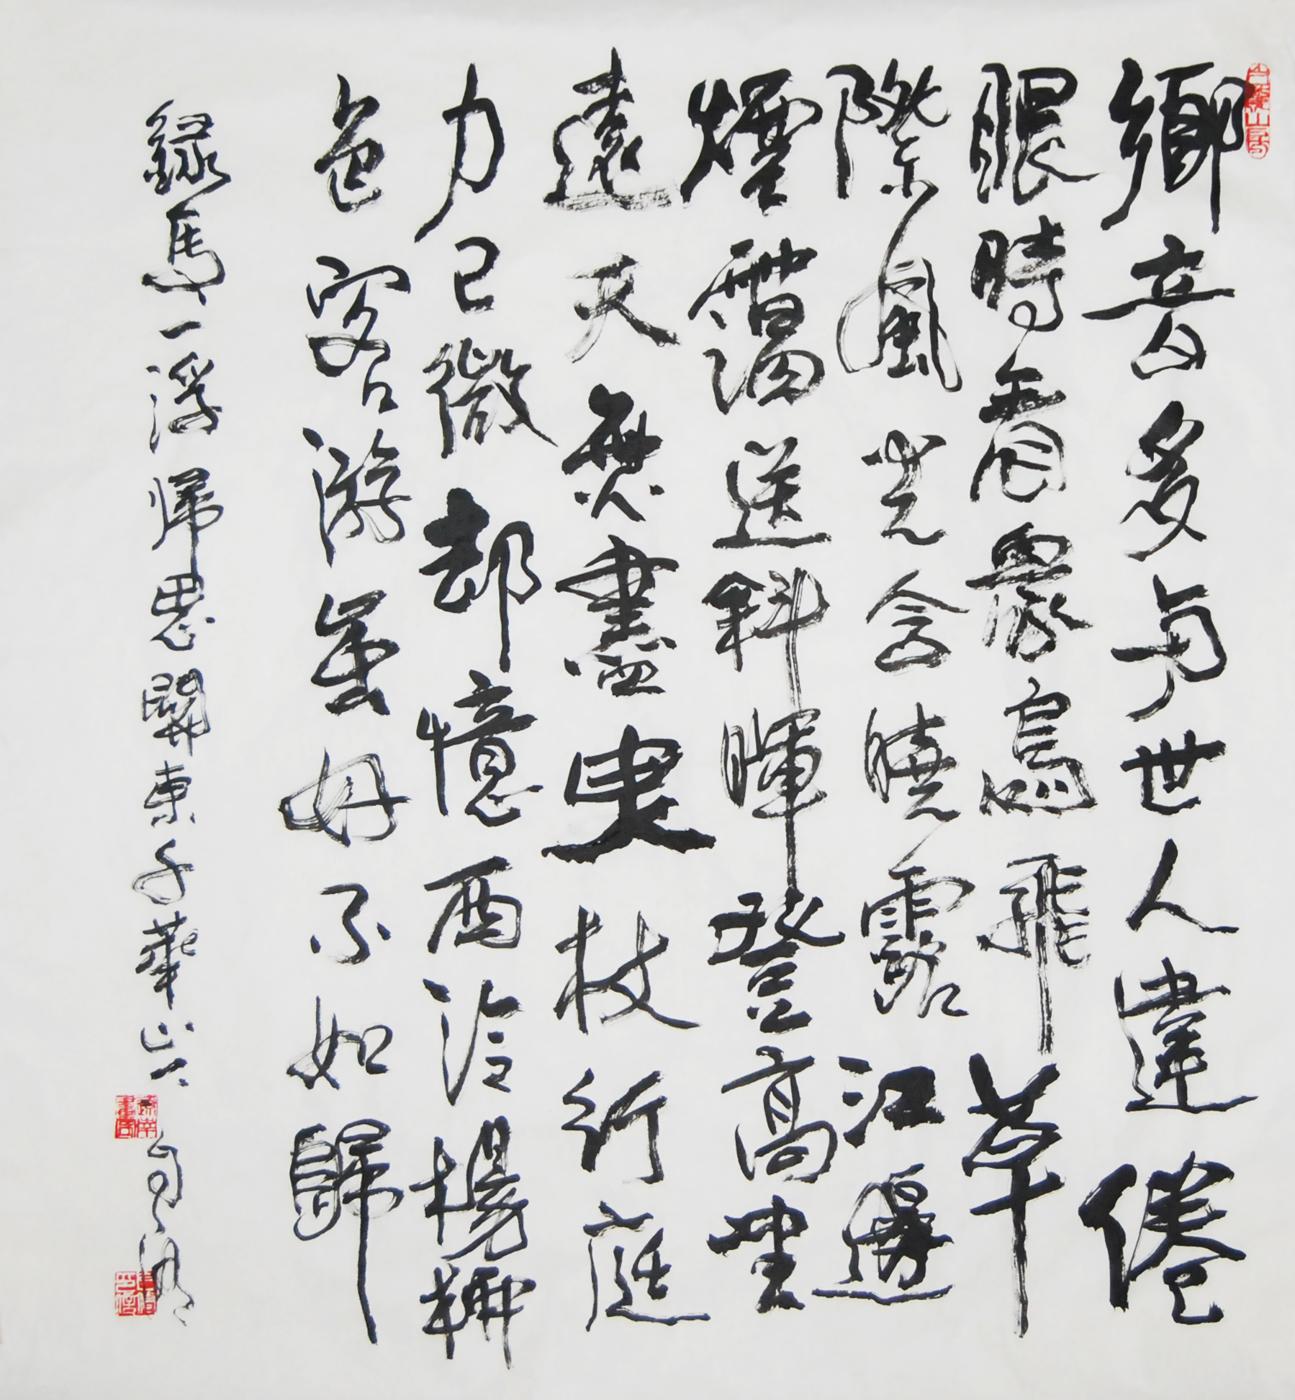 鄉音多与世人違倦
眼時看眾鳥飛草
際風光含曉露江邊
煙靄送斜暉登高望
遠天無盡曳杖行庭
力已微却憶西泠楊柳
色客游雖好不如歸
録馬一浮歸思 關東千華山人